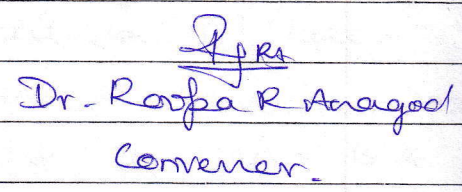 Dr. Roopa R Anagod
Convener.